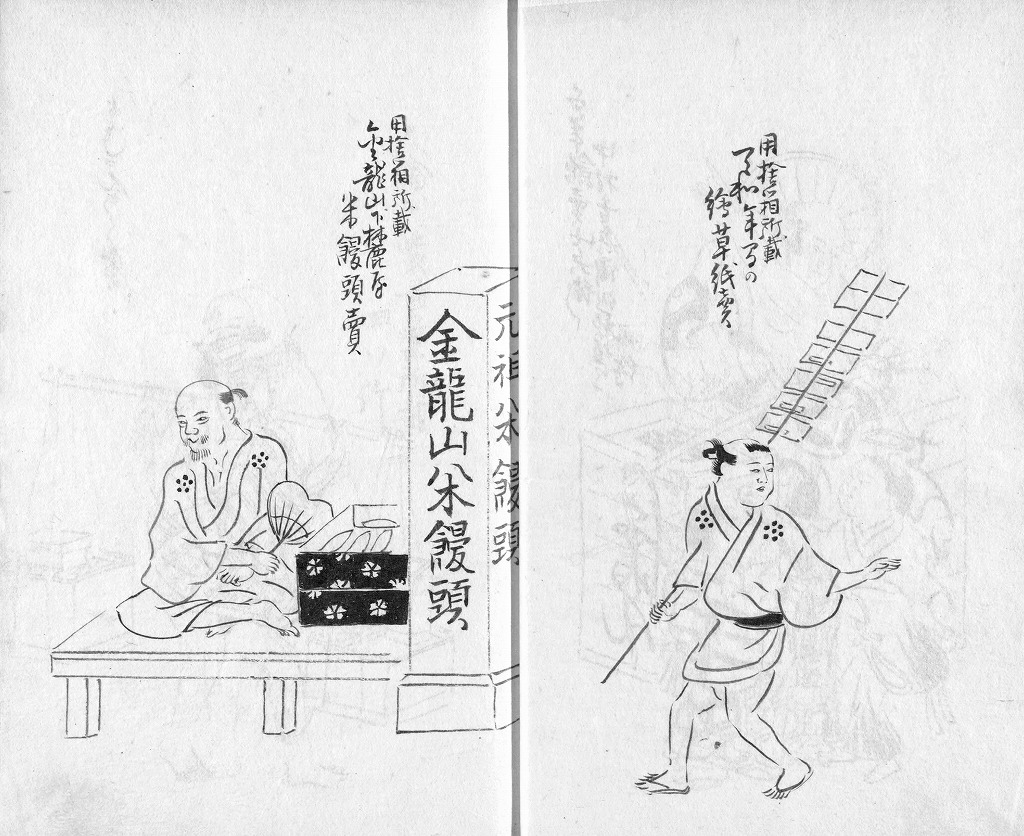 用捨箱所載
天和年間の
繪草紙賣
用捨箱所載
金龍山下麓屋
米饅頭賣
元祖米饅頭
金龍山米饅頭